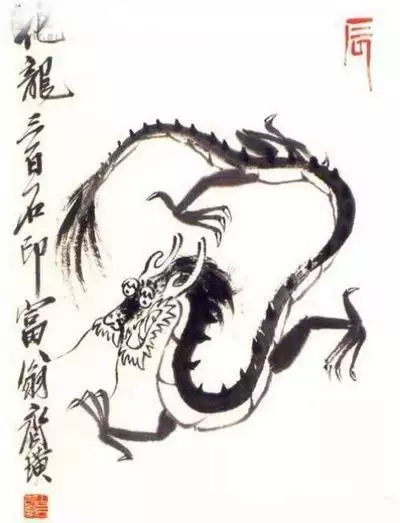 辰
龍三百石印富翁齊璜